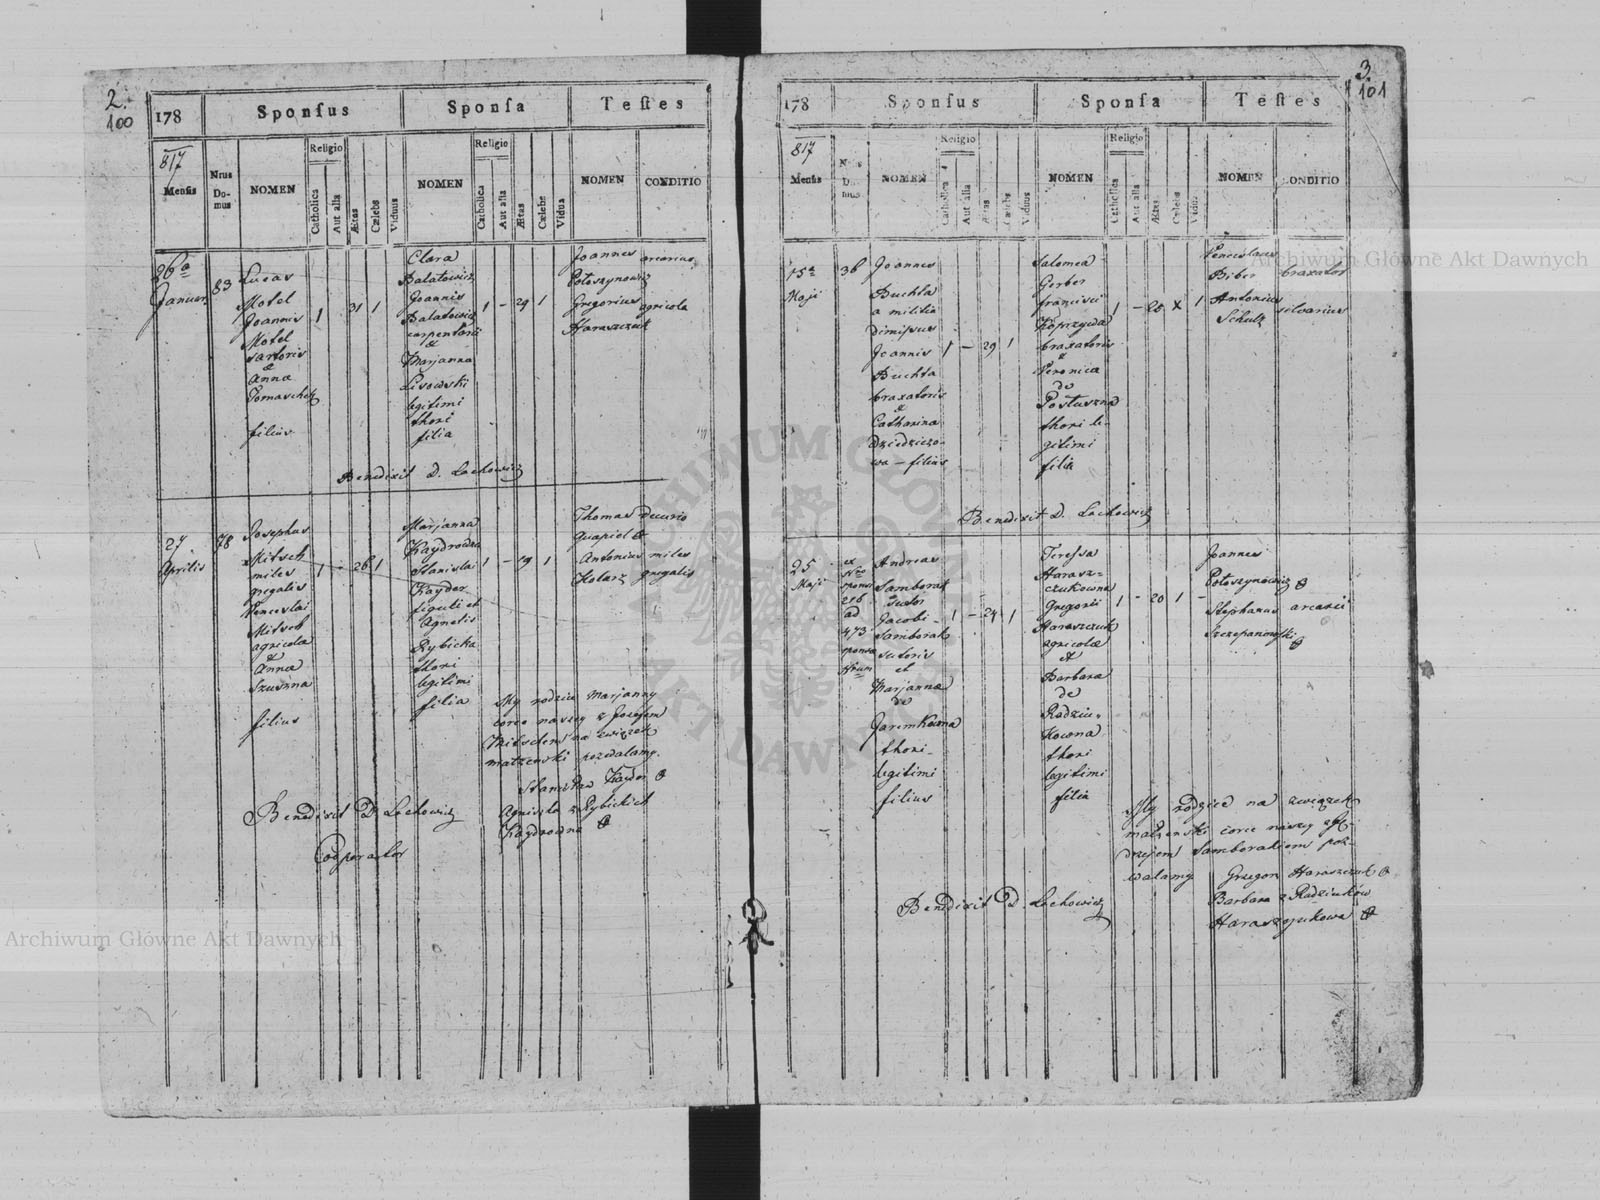 2.
100
178
Sponſus
Sponſa
Teſtes
817
Menſis
Nrus
Do-
mus
NOMEN
Religio
Catholica
Aut alia
Ætas
Cælebs
Viduus
NOMEN
Religio
Catholica
Aut alia
Ætas
Cælebs
Vidua
NOMEN
CONDITIO
26a
Januar
83
Lucas
Motel
Joannis
Motel
sartoris
&
Anna
Tomaschek
filius
1
31
1
Clara
Balatowicz
Joannis
Balatowicz
carpentarii
&
Marjanna
Lisowski
legitimi
thori
filia
1 - 29 1
Joannes
Potoszynowicz
Gregorius
Haraszczuk
arcarius
agricola
Benedixit D. Lachowicz
27
Aprilis
78
Josephus
Mitsch
miles
gregalis
Venceslai
Mitsch
agricola
&
Anna
filius
1 - 26 1
Marjanna
Kaydrowna
Stanislai
Kaydor
figuli et
Agnetis
Rybicka
thori
legitimi
filia
1 - 19 1
Thomas
Quapiel &
Antonius
Kolarz
decurio
miles
gregalis
My rodzice Marjanny
corce naszey z Jozefem
Mitschem na związek
matzenski pozwalamy.
Stanisław Kaydor
Agniszka z Rybickich
Kaydrowna
Benedixit D. Lachowicz
Cooperator
3.
101
178
Sponſus
Sponſa
Teſtes
817
Menſis
Nrus
Do-
mus
NOMEN
Religio
Catholica
Aut alia
Ætas
Cælebs
Viduus
NOMEN
Religio
Catholica
Aut alia
Ætas
Cælebs
Vidua
NOMEN
CONDITIO
15a
Maji
36
Joannes
Buchta
a militia
dimissus
Joannis
Buchta
braxatoris
&
Catharina
Dziedzico-
wa - filius
1 - 29 1
Salomea
Gerber
francisci
Koprzywa
braxatoris
&
Veronica
de
Postuszna
thori le-
gitimi
filia
1 - 28 x 1
Venceslaus
Biber
Antonius
Schulz
braxator
silvarius
Benedixit D. Lachowicz
25
Maji
ex
Nro
sponsi
216
ad
473
sponsa
Nrum
Andreas
Samborak
Sutor
Jacobi
Samborak
sutoris
et
Marjanna
de
Jaremkowna
thori
legitimi
filius
1 - 24 1
Teressa
Harasz-
czukowna
Gregorii
Haraszczuk
agricola
&
Barbara
de
Radziu-
kowna
thori
legitimi
filia
1 - 20 1 -
Joannes
Potoszynowicz
Stephanus
Szczepanowski
arcarii
My rodzice na związek
małzenski corce naszey z An-
drzejem Samborakiem poz-
walamy
Grzegorz Haraszczuk
Barbara z Radziuków
Haraszczukowa
Benedixit D. Lachowicz
Archiwum Główne Akt Dawnych
Archiwum Główne Akt Dawnych
ARCHIWUM GŁÓWNE AKT DAWNYCH